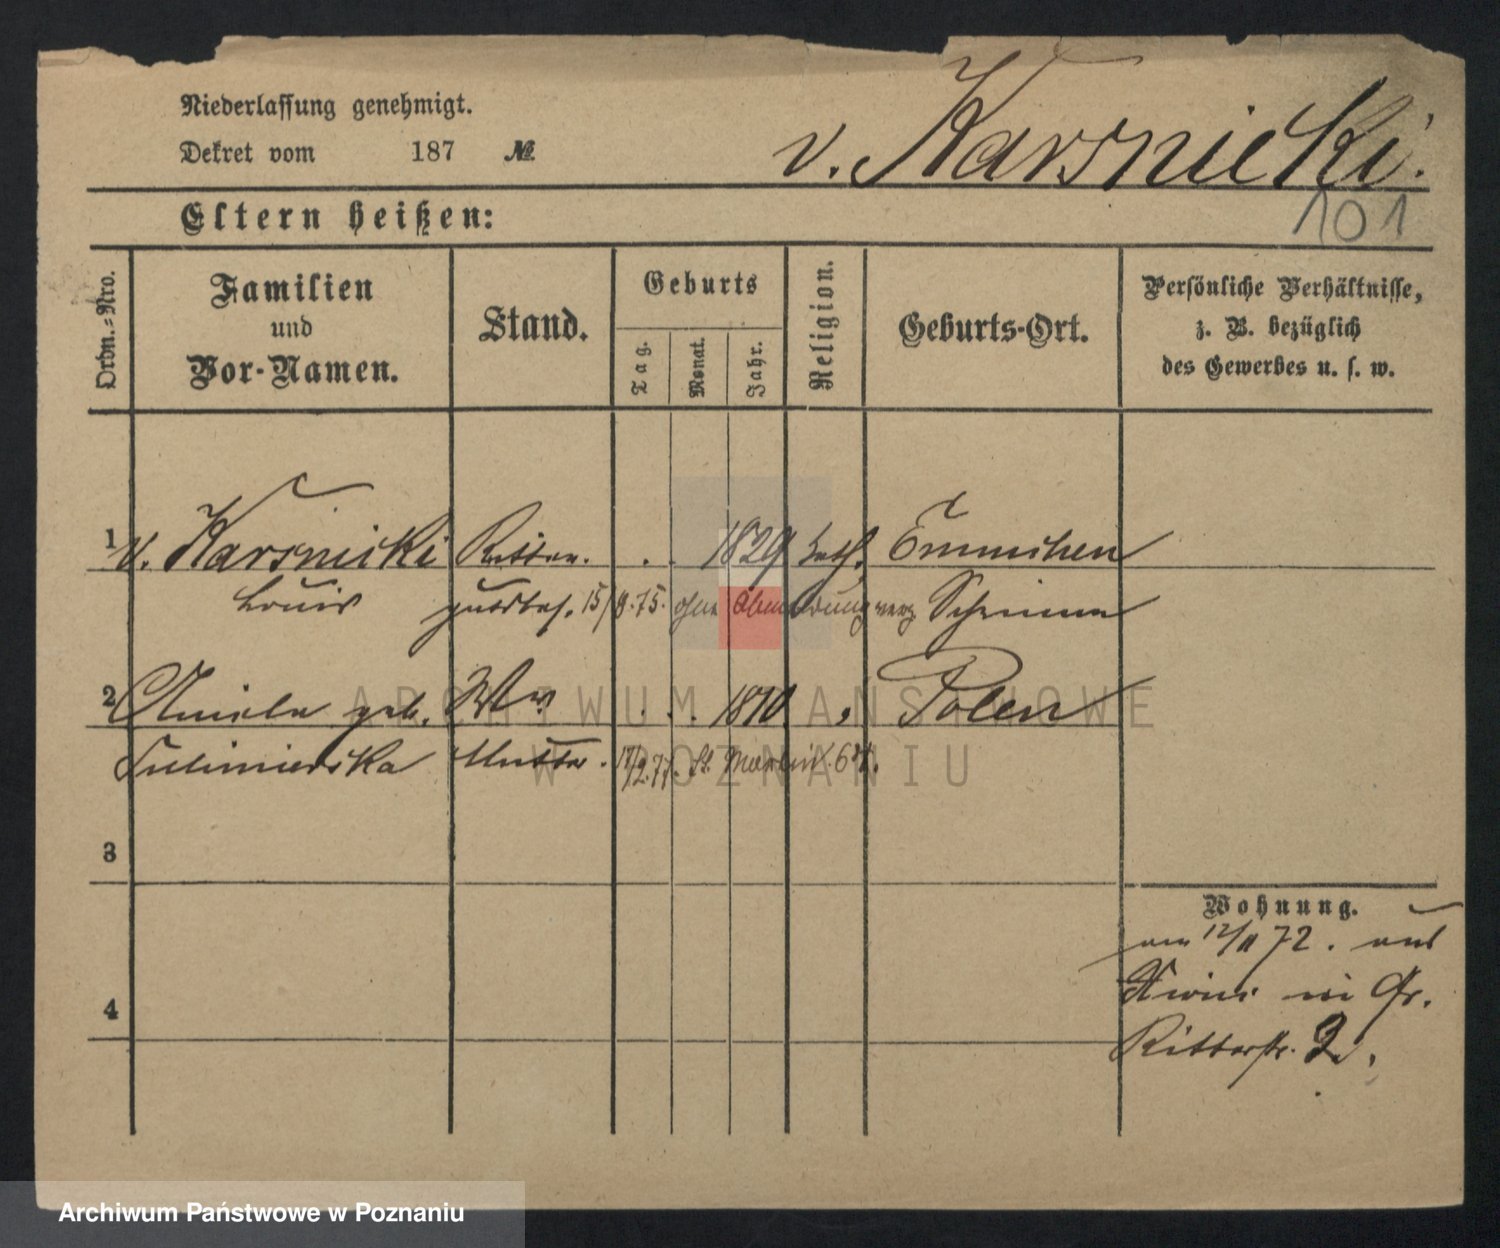 Niederlassung genehmigt.
Dekret vom 187 №
v. Karsnicki.
101
Eltern heißen:
Ordn.-Nro.
Familien
und
Vor-Namen.
Stand.
Geburts
Tag.
Monat.
Jahr.
Religion.
Geburts-Ort.
Persönliche Verhältnisse,
z. B. bezüglich
des Gewerbes u. s. w.
1 v. Karsnicki Ritter. 1829 kath. Emmchen
Louis gutsbes. 15/9.75. ohne Abmeldung verz. Schrimm
2 Aniela geb. Ww 1810 Polen
Sulimierska Mutter. 17/2.77. St. Martin 68.
3
4
Wohnung.
am 12/11 72. aus
in Gr.
Ritterstr. 2.
ARCHIWUM PAŃSTWOWE
W POZNANIU
Archiwum Państwowe w Poznaniu